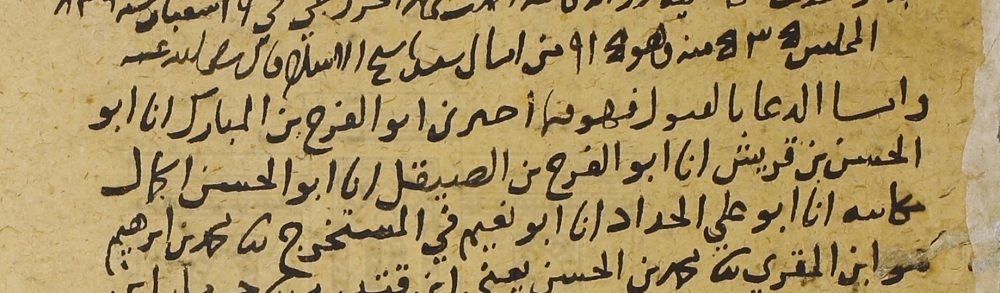 في
المجلس منه وهو من امالي سيدنا شيخ الاسلام قال رضي الله عنه
واما الدعا بالقبول فهو اخبرني ابو الفرج بن المبارك انا ابو
الحسن بن قريش انا ابو الفرج بن الصيقل انا ابو الحسن الجمال
كتابه انا ابو علي الحداد انا ابو نعيم في المستخرج ثنا محمد بن ابرهيم
هو ابن المقري ثنا محمد بن الحسن يعني ابن قتيبه